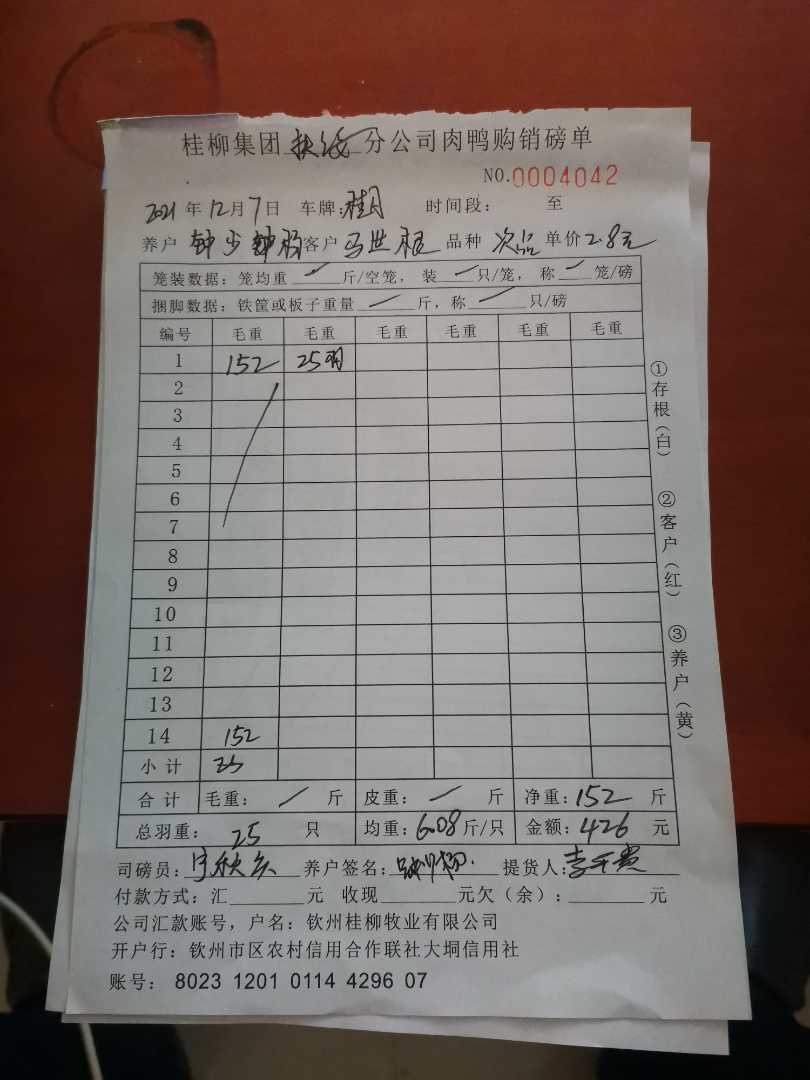 桂柳集团 扶绥 分公司肉鸭购销磅单
NO.0004042
2021 年 12 月 7 日 车牌: 时间段: 至
养户 钟少 客户 马世根 品种 次品 单价 2.8元
笼装数据: 笼均重 / 斤/空笼, 装 / 只/笼, 称 / 笼/磅
捆脚数据: 铁筐或板子重量 / 斤, 称 / 只/磅
编号 毛重 毛重 毛重 毛重 毛重 毛重
1 152 25羽
2
3
4
5
6
7
8
9
10
11
12
13
14 152
小计 25
合计 毛重: / 斤 皮重: / 斤 净重: 152 斤
总羽重: 25 只 均重: 6.08 斤/只 金额: 426 元
司磅员: 养户签名: 提货人:
付款方式: 汇 元 收现 元欠(余): 元
公司汇款账号, 户名: 钦州桂柳牧业有限公司
开户行: 钦州市区农村信用合作联社大垌信用社
账号: 8023 1201 0114 4296 07
①存根(白)
②客户(红)
③养户(黄)